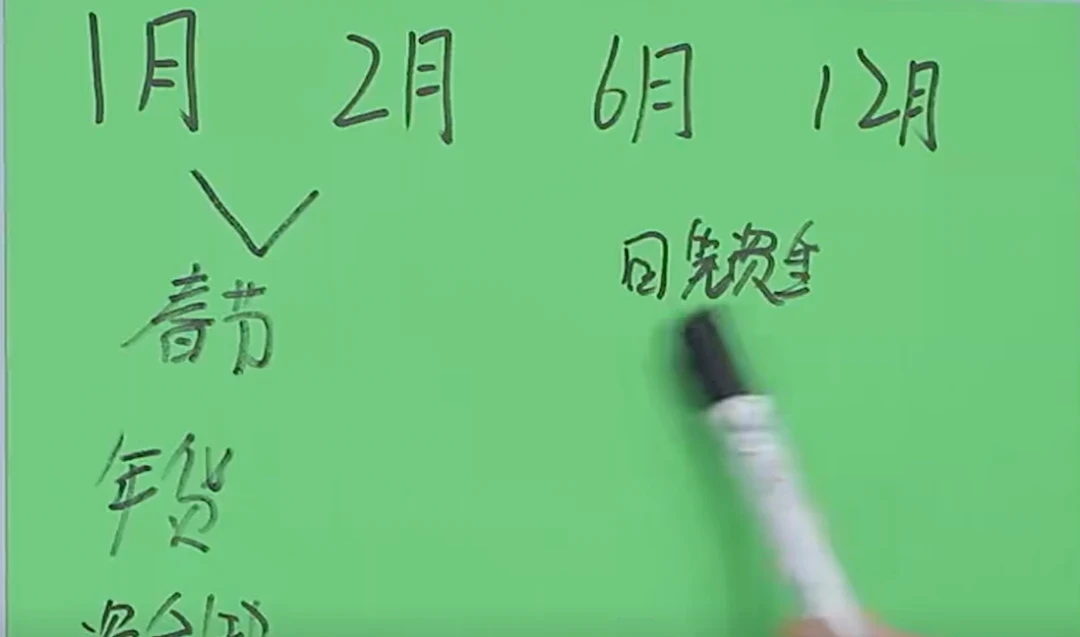 1月 2月 6月 12月
回笼资金
春节
年货